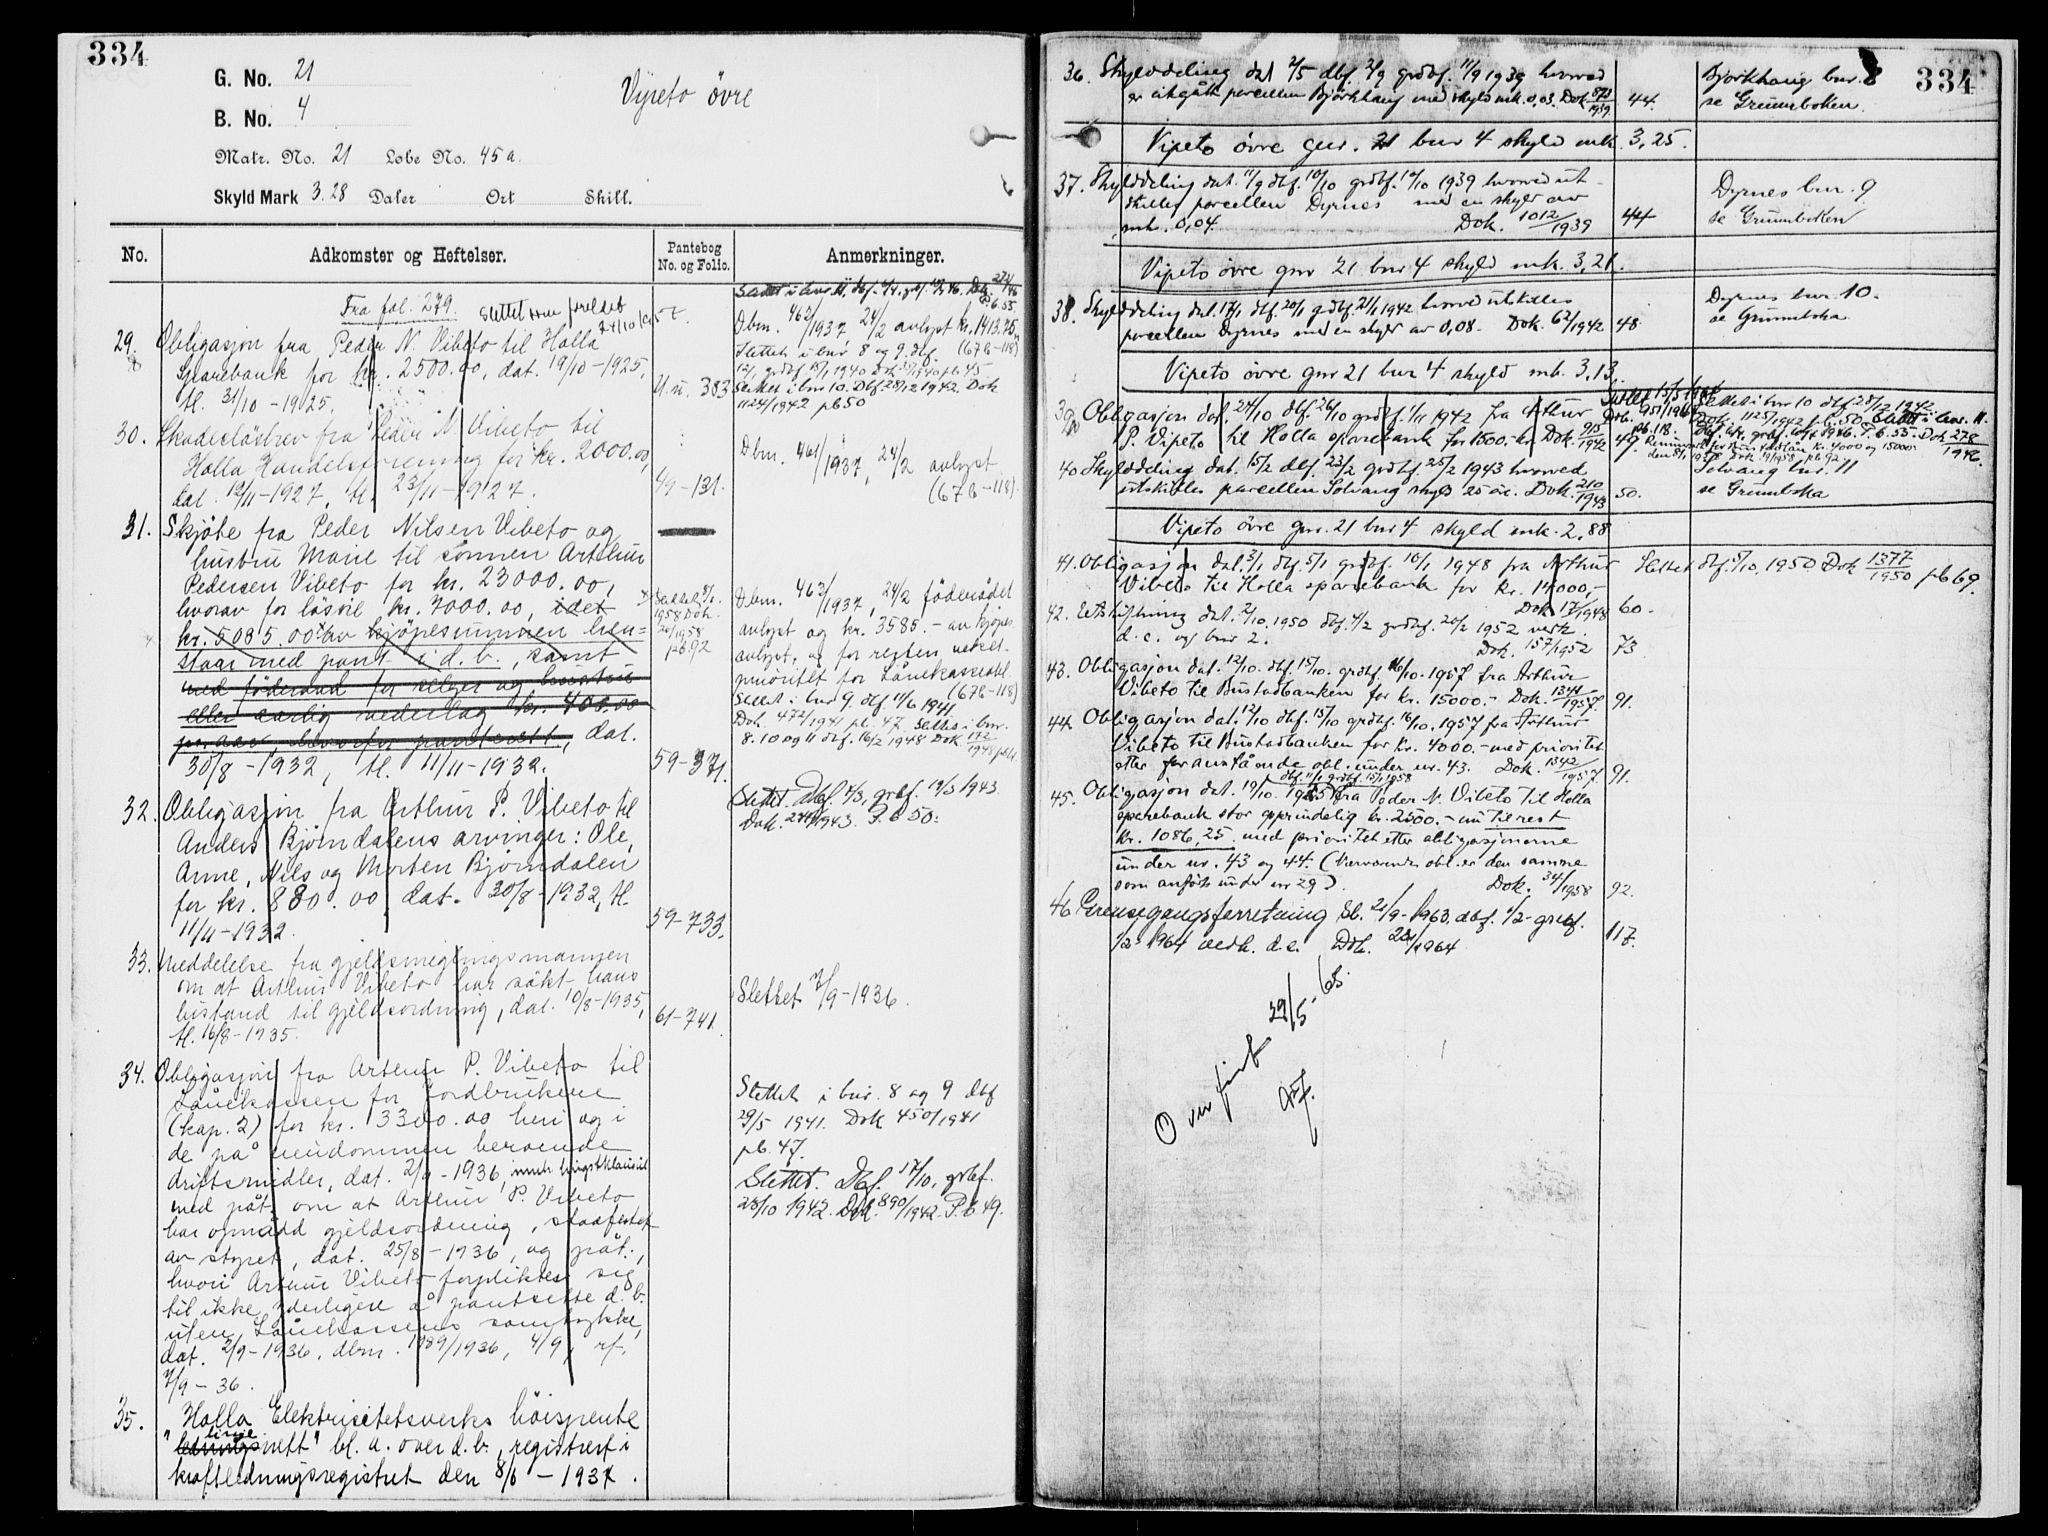 334
G. No. 21
B. No. 4
Vipeto övre
Matr. No. 21 Løbe No. 45 a.
Skyld Mark 3.28 Daler Ort Skill.
No. Adkomster og Heftelser. Pantebog No. og Folio. Anmerkninger.
Fra fol. 279. Slettet som foreldet
29. Obligasjon fra Peder N. Vibeto til Holla
Sparebank for kr. 2500.00, dat. 19/10-1925,
tl. 31/10-1925.
Dbm. 462/1937 24/2 avlyst kr. 1413.75
(67b-118)
Slettet i bnr 8 og 9. dbf.
Slettet i bnr 10. Dbf 28/12 1942. Dok
1124/1942 pb 50
30. Skadesløsbrev fra Peder N. Vibeto til
Holla Handelsforening for kr. 2000.00,
dat. 12/11-1927, tl. 23/11-1927.
49-131.
Dbm. 461/1937, 24/2 avlyst
(67b-118).
31. Skjöte fra Peder Nilsen Vibeto og
hustru Marie til sönnen Arthur
Pedersen Vibeto for kr. 23000.00,
hvorav for lösöre kr. 7000.00, idet
kr. 5085.00 av kjöpesummen hen=
staar med pant i d.b., samt
med föderaad for selger og hustru
eller aarlig vederlag kr. 400.00
pr. aar, hvorfor panterett, dat.
30/8-1932, tl. 11/11-1932.
Slettet 8/1.
1958 Dok.
20/1958
pb 92
59-371.
Dbm. 463/1937, 24/2 föderådet
avlyst og kr. 3585.- av kjöpes.
avlyst, og for resten veket
prioritet for Lånekasseobl.
(67b-118)
Slettet i bnr 9. dbf 11/6 1941
Dok. 472/1941 pb. 47. Slettes i bnr.
8. 10 og 11 dbf. 16/2 1948 Dok 192/1948
32. Obligasjon fra Arthur P. Vibeto til
Anders Bjørndalens arvinger: Ole,
Anne, Nils og Morten Bjørndalen
for kr. 880.00, dat. 30/8-1932, tl.
11/11-1932.
59-733.
Slettet. Dbf. 4/3, grbf. 19/3 1943.
Dok. 1943. P.b 50.
33. Meddelelse fra gjeldsmeglingsmannen
om at Arthur Vibeto har sökt hans
bistand til gjeldsordning, dat. 10/8-1935,
tl. 16/8-1935.
61-741.
Slettet 7/9-1936.
34. Obligasjon fra Arthur P. Vibeto til
Lånekassen for Jordbrukere
(kap. 2) for kr. 3300.00 heri og i
de på eiendommen beroende
driftsmidler, dat. 2/9-1936,
med påt. om at Arthur P. Vibeto
har opnådd gjeldsordning, stadfestet
av styret, dat. 25/8-1936, og påt.,
hvori Arthur Vibeto forplikter sig
til ikke yderligere å pantsette d.b.
uten Lånekassens samtykke,
dat. 2/9-1936. dbm. 1989/1936, 4/9, rf.
7/9-36.
Slettet i bnr. 8 og 9 dbf
29/5 1941. Dok 450/1941
pb. 47.
Slettet. Dbf. 17/10, grbf.
28/10 1942. Dok. 890/1942. P.b 49.
35. Holla Elektrisitetsverks höispente
linje
"ledningsnett" bl. a. over d.b., registrert i
kraftledningsregistret den 8/6-1937.
334
36. Skylddeling dat 2/5 dbf. 7/9 grdbf. 11/9 1939 hvorved
er utgått parcellen Björkhaug med skyld mk. 0,03. Dok 873/1939.
44.
Björkhaug bnr. 8
se Grunnboken.
Vipeto övre gnr. 21 bnr 4 skyld mk. 3,25.
37. Skylddeling dat. 11/9 dbf. 10/10 grdbf. 12/10 1939 hvorved ut-
skilles parcellen Dyrnes med en skyld av
mk. 0,04. Dok. 1012/1939
44
Dyrnes bnr. 9
se Grunnboken
Vipeto övre gnr 21 bnr 4 skyld mk. 3,21.
38. Skylddeling dat. 17/1 dbf. 20/1 grdbf. 21/1 1942 hvorved utskilles
parcellen Dyrnes med en skyld av 0,08. Dok. 62/1942
48.
Dyrnes bnr. 10.
se Grunnboka.
Vipeto övre gnr 21 bnr 4 skyld mk. 3,13
39. Obligasjon dat. 24/10 dbf. 26/10 grdbf. 1/11 1942 fra Arthur
P. Vipeto til Holla sparebank for 1500.- kr. Dok. 915/1942
49.
Slettet i bnr 10 dbf 28/12 1942.
Dok. 1125/1942 p.b. 50. Slettet i bnr. 11.
40. Skylddeling dat. 15/2 dbf. 23/2 grdbf. 25/2 1943 hvorved
utskilles parcellen Solvang skyld 25 øre. Dok. 210/1943
50.
Solvang bnr. 11
se Grunnboka
Vipeto övre gnr. 21 bnr 4 skyld mk. 2,88
41. Obligasjon dat. 3/1 dbf. 5/1 grdbf. 10/1 1948 fra Arthur
Vibeto til Holla sparebank for kr. 14000,-
Dok 17/1948
60.
Slettet dbf. 5/10. 1950. Dok 1377/1950 pb 69.
42. Utskiftning dat. 21/10. 1950 dbf. 4/2 grdbf. 20/2 1952 vedk.
d.e. og bnr 2. Dok. 157/1952
73
43. Obligasjon dat. 12/10. dbf. 15/10. grdbf. 16/10. 1957 fra Arthur
Vibeto til Bustadbanken for kr. 15000.- Dok. 1341/1957.
91.
44. Obligasjon dat. 12/10 dbf. 15/10 grdbf. 16/10. 1957 fra Arthur
Vibeto til Bustadbanken for kr. 4000.- med prioritet
etter foranstående obl. under nr. 43. Dok. 1342/1957.
91.
dbf. 11/1 grdbf. 15/1 1958
45. Obligasjon dat. 19/10. 1925 fra Peder N. Vibeto til Holla
sparebank stor opprindelig kr. 2500.- nu til rest
kr. 1086,25 med prioritet etter obligasjonerne
under nr. 43 og 44. (Nærværende obl. er den samme
som anført under nr 29). Dok. 34/1958
92.
46. Grensegangsforretning sl. 21/9-1963. dbf. 1/2- grbf.
1/2-1964 vedk. d.e. Dok. 1964
117.
Overfört 29/5-65.